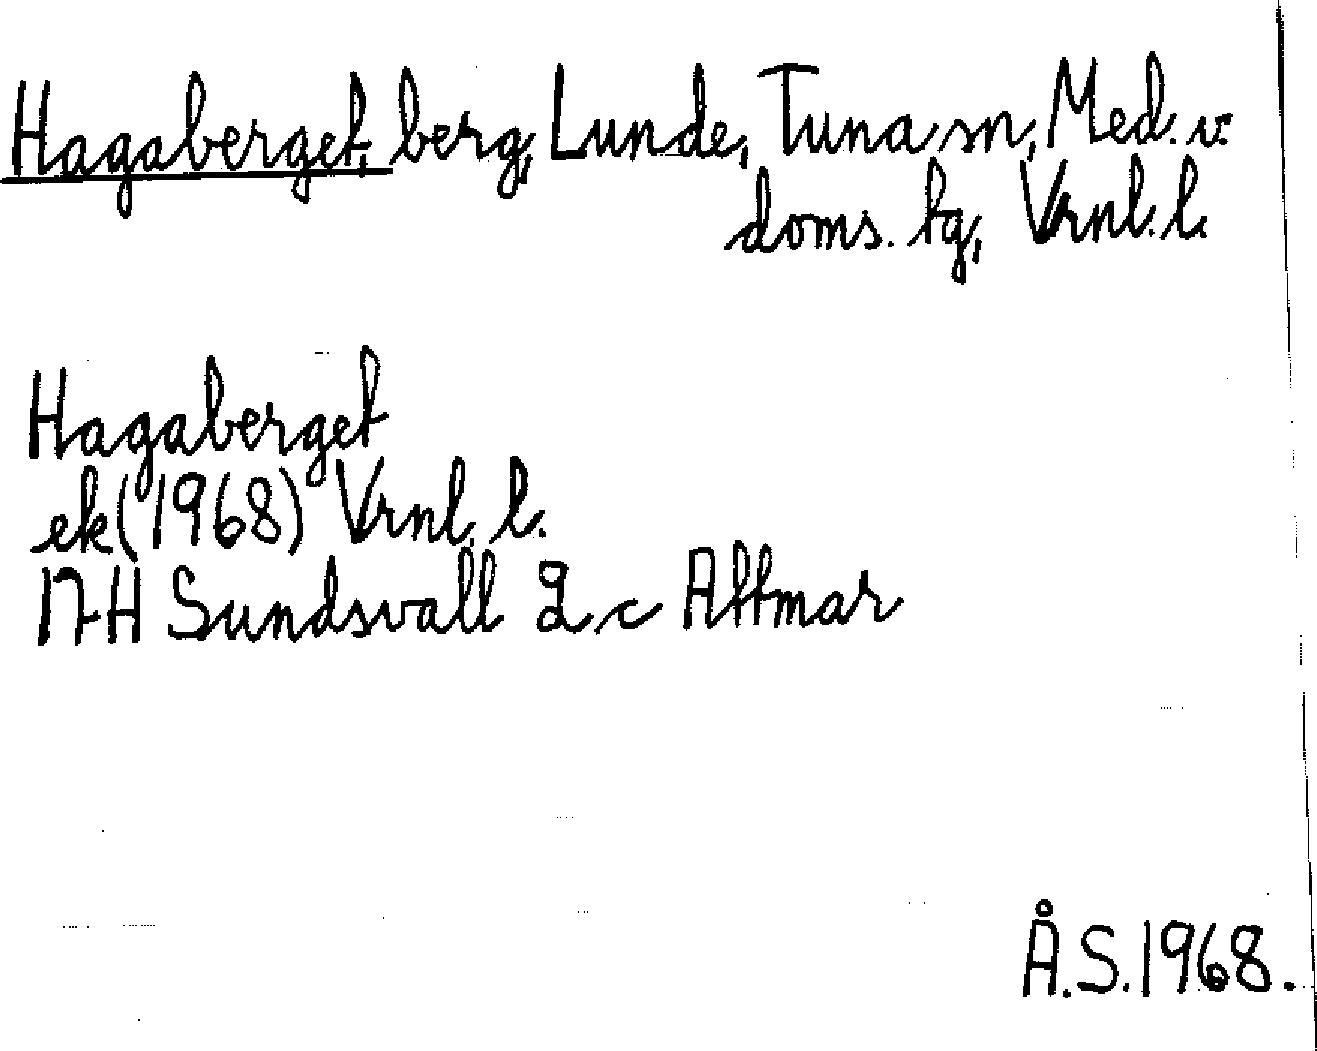 Hagaberget, berg, Lunde, Tuna sn, Med. v.
doms. tg, Vrnl. l.
Hagaberget
ek (1968) Vrnl. l.
17 H Sundsvall 2 c Attmar
Å.S. 1968.